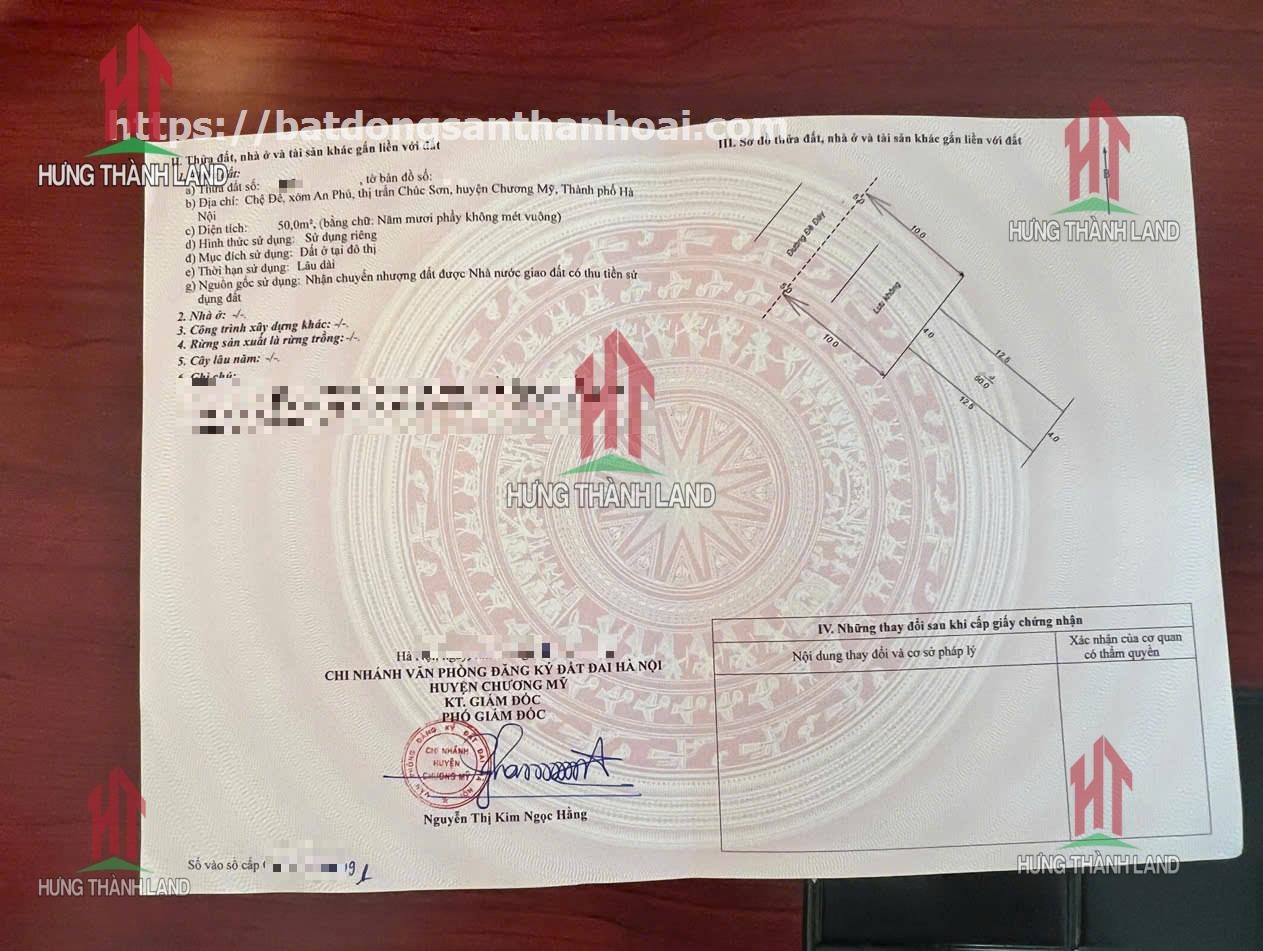 https://batdongsanthanhoai.com
HƯNG THÀNH LAND
HƯNG THÀNH LAND
II. Thửa đất, nhà ở và tài sản khác gắn liền với đất
a) Thửa đất số: , tờ bản đồ số:
b) Địa chỉ: Chệ Đê, xóm An Phú, thị trấn Chúc Sơn, huyện Chương Mỹ, Thành phố Hà
Nội
c) Diện tích: 50,0m², (bằng chữ: Năm mươi phẩy không mét vuông)
d) Hình thức sử dụng: Sử dụng riêng
đ) Mục đích sử dụng: Đất ở tại đô thị
e) Thời hạn sử dụng: Lâu dài
g) Nguồn gốc sử dụng: Nhận chuyển nhượng đất được Nhà nước giao đất có thu tiền sử
dụng đất
2. Nhà ở: -/-.
3. Công trình xây dựng khác: -/-.
4. Rừng sản xuất là rừng trồng: -/-.
5. Cây lâu năm: -/-.
Ghi chú:
HƯNG THÀNH LAND
CHI NHÁNH VĂN PHÒNG ĐĂNG KÝ ĐẤT ĐAI HÀ NỘI
HUYỆN CHƯƠNG MỸ
KT. GIÁM ĐỐC
PHÓ GIÁM ĐỐC
VĂN PHÒNG ĐĂNG KÝ ĐẤT ĐAI HÀ NỘI
CHI NHÁNH
HUYỆN
CHƯƠNG MỸ
Nguyễn Thị Kim Ngọc Hằng
Số vào sổ cấp
HƯNG THÀNH LAND
III. Sơ đồ thửa đất, nhà ở và tài sản khác gắn liền với đất
B
Đường Đê Đáy
10.0
Lưu không
10.0
4.0
12.5
50.0
12.5
4.0
IV. Những thay đổi sau khi cấp giấy chứng nhận
Nội dung thay đổi và cơ sở pháp lý
Xác nhận của cơ quan
có thẩm quyền
HƯNG THÀNH LAND